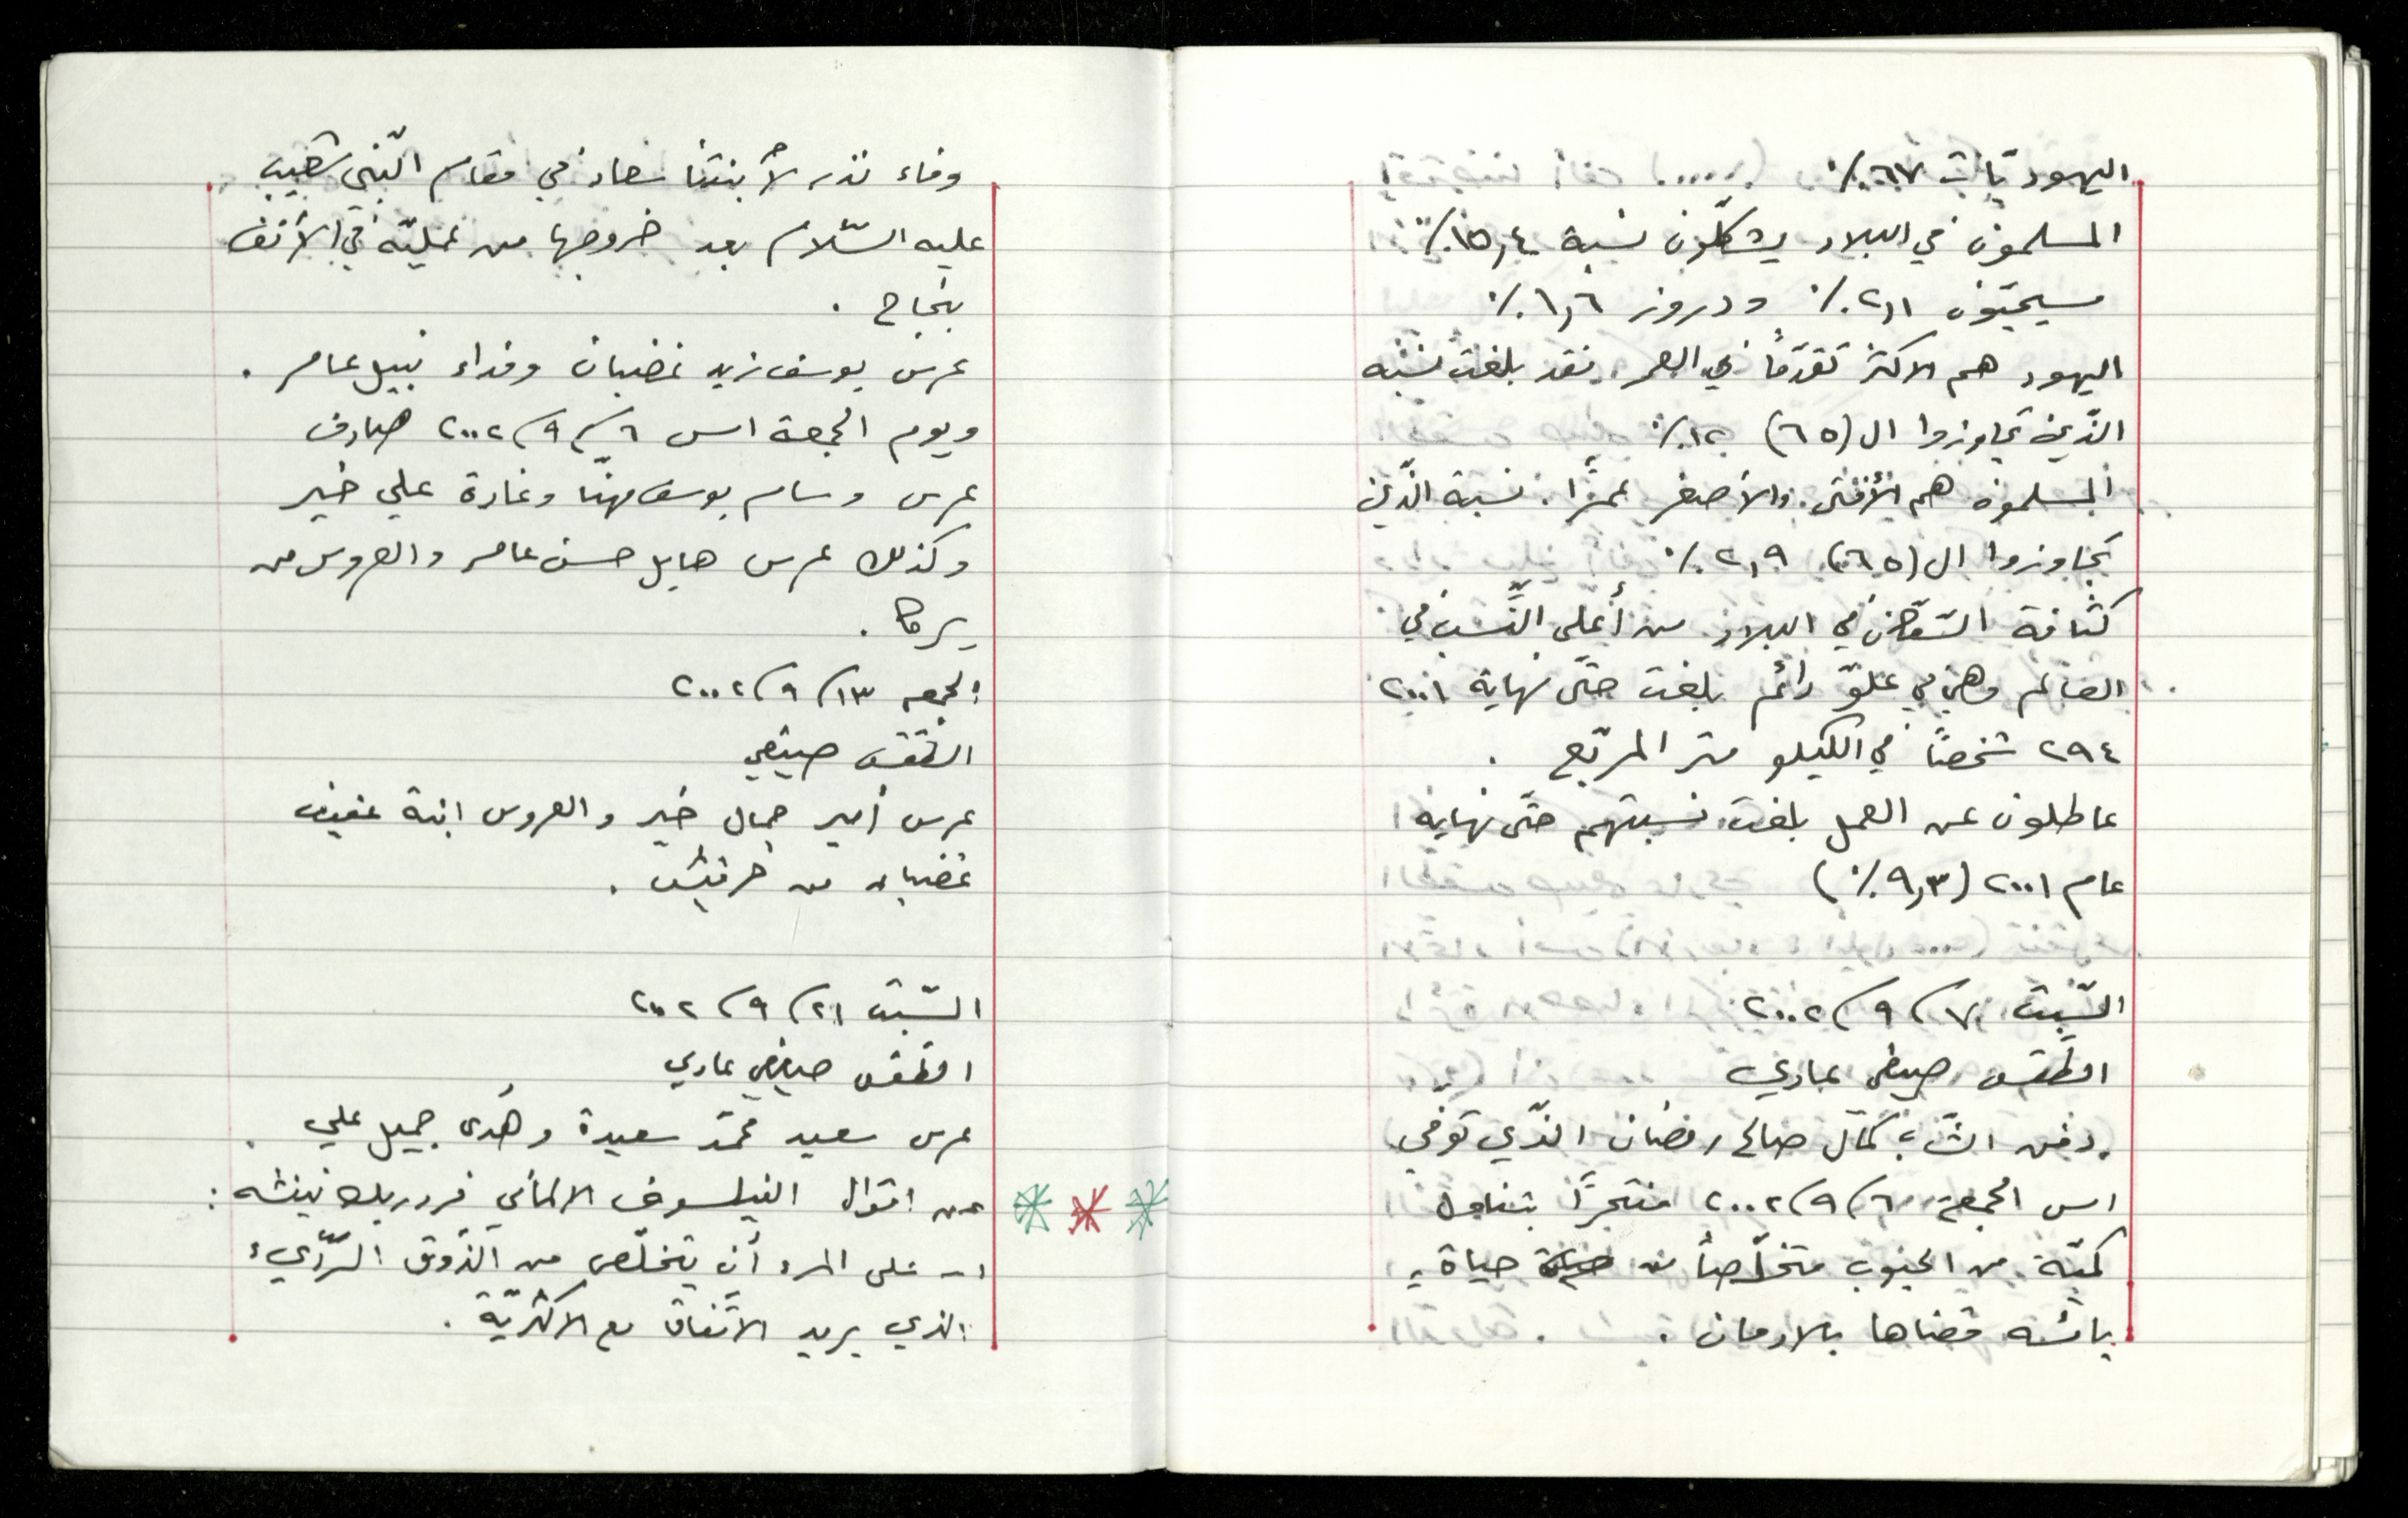 اليهوديّات ٦٧٪
المسلمون في البلاد يشكّلون نسبة ١٥,٤٪
مسيحيّون ٢,١٪ ودروز ١,٦٪
اليهود هم الاكثر تقدّمًا في العمر فقد بلغت نسبة
الذّين تجاوزوا ال(٦٥) ١٢٪
المسلمون هم الأفتى والأصغر عمرًا. نسبة الذّين
تجاوزوا ال(٦٥) ٢,٩٪
كثافة السّكّان في البلاد من أعلى النّسب في
العالم وهي في علوّ دائم بلغت حتّى نهاية ٢٠٠١
٢٩٤ شخصًا في الكيلو متر المربّع .
عاطلون عن العمل بلغت نسبتهم حتّى نهاية
عام ٢٠٠١ (٩,٣٪)
السّبت ٧/٩/٢٠٠٢
الطّقس صيفي عادي
دفن الشّاب كمال صالح رمضان الذّي توفّي
امس الجمعة ٦/٩/٢٠٠٢ منتحرًا بتناول
كميّة من الحبوب متخلّصاً من حياة
بائسة قضاها بالادمان .
وفاء نذر لأبنتنا سعاد في مقام النّبي شعيب
عليه السّلام بعد خروجها من عمليّة في الأنف
بنجاح .
عرس يوسف زيد غضبان وفداء نبيل عامر .
ويوم الجمعة امس ٦/٩/٢٠٠٢ صادف
عرس وسام يوسف مهنّا وغادة علي خير
وكذلك عرس هايل حسن عامر والعروس من
يركا .
الجمعه ١٣/٩/٢٠٠٢
الطّقس صيفي
عرس أمير جمال خير والعروس ابنة عفيف
غضبان من حرفيش .
السّبت ٢١/٩/٢٠٠٢
الطقس صيفي عادي
عرس سعيد محمّد سعيدة وهُدى جميل علي .
من اقوال الفيلسوف الالماني فردريك نيتشه :
١- على المرء أن يتخلّص من الذّوق الرّديء
الذي يريد الاتّفاق مع الاكثريّة .